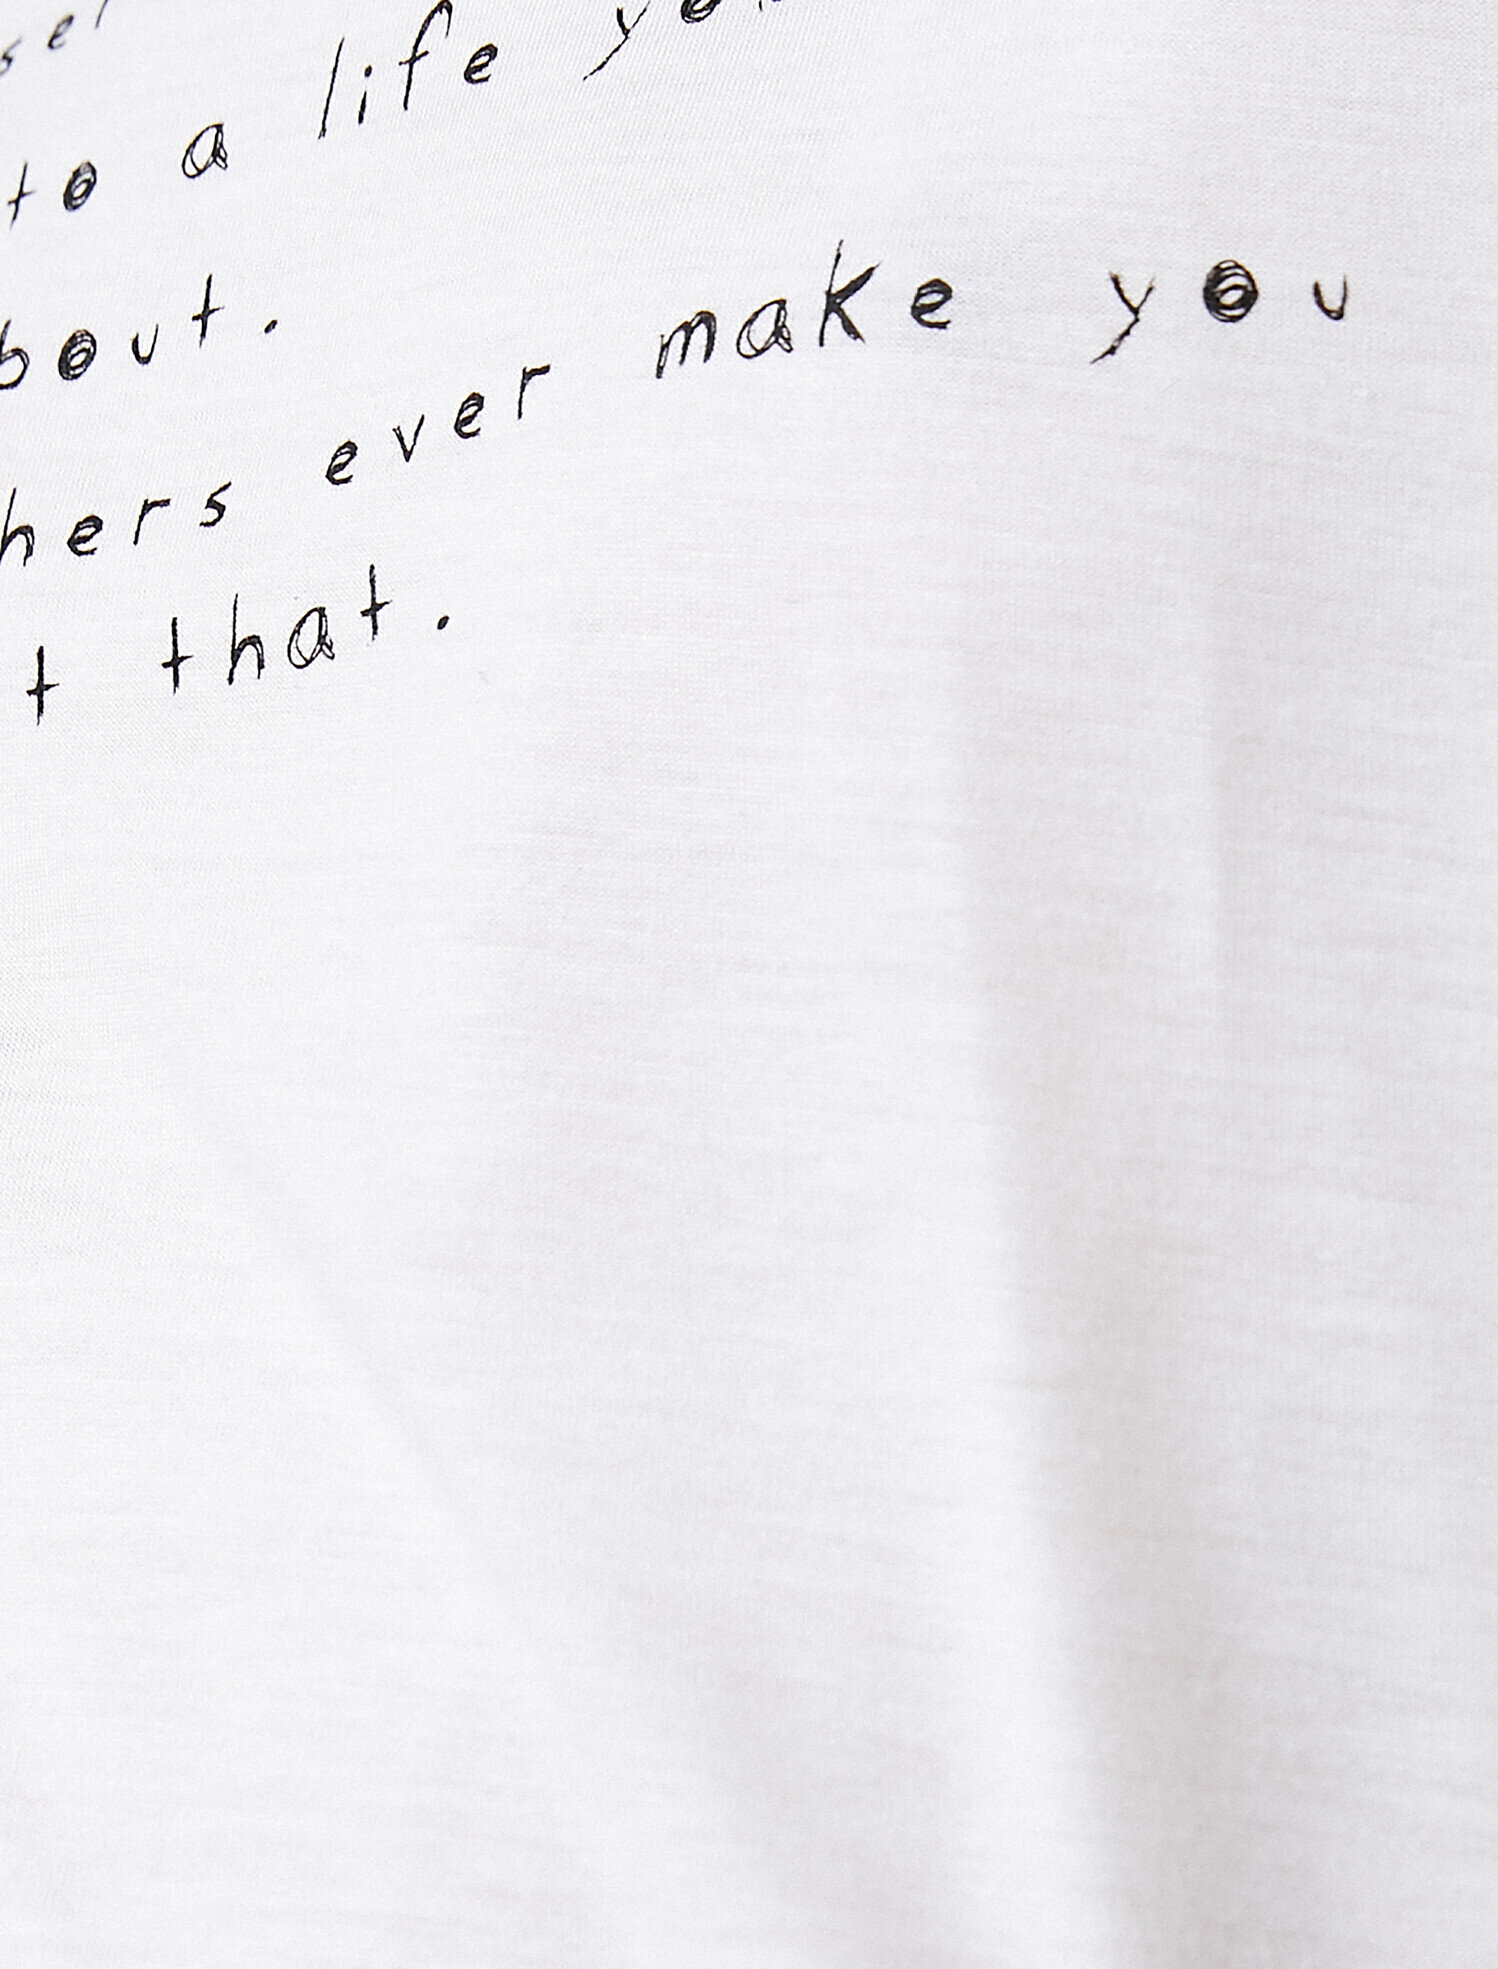 to a life
bout.
hers ever make you
t that.